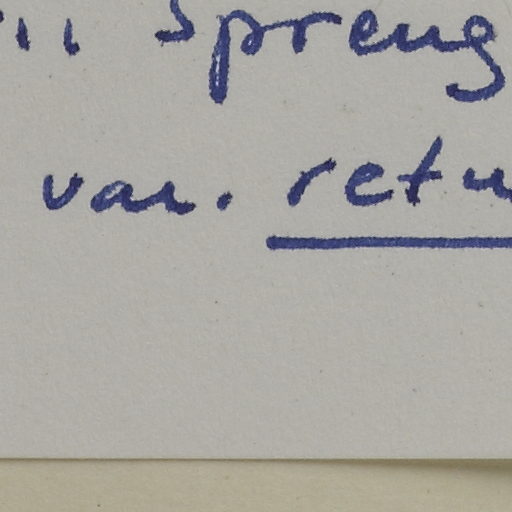 Spreng
var. retu